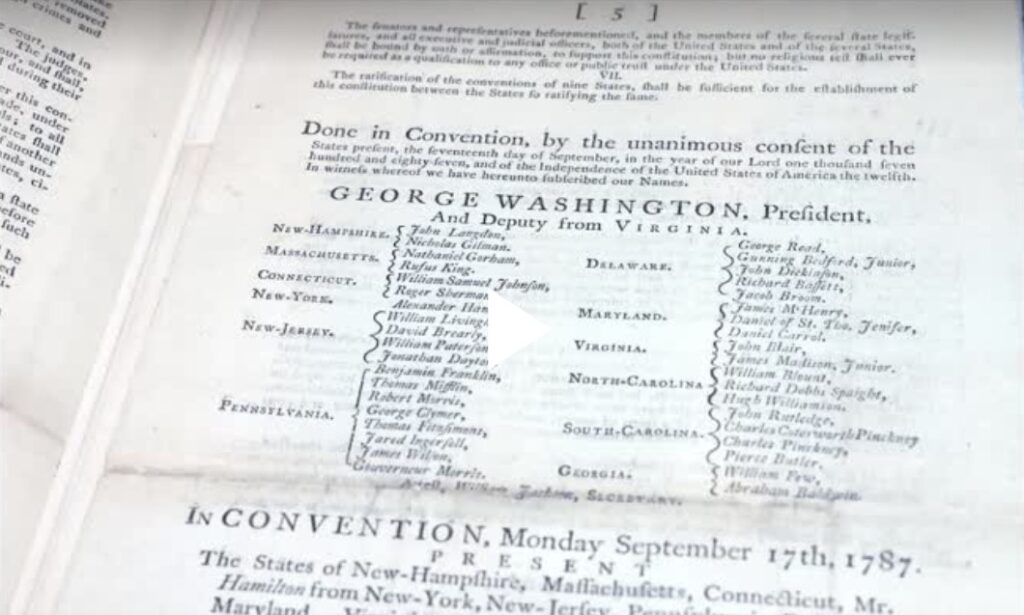 [ 5 ]
The ſenators and repreſentatives beforementioned, and the members of the ſeveral ſtate legiſ-
latures, and all executive and judicial officers, both of the United States and of the ſeveral States,
ſhall be bound by oath or affirmation, to ſupport this conſtitution; but no religious teſt ſhall ever
be required as a qualification to any office or public truſt under the United States.
VII.
The ratification of the conventions of nine States, ſhall be ſufficient for the eſtabliſhment of
this conſtitution between the States ſo ratifying the ſame.
Done in Convention, by the unanimous conſent of the
States preſent, the ſeventeenth day of September, in the year of our Lord one thouſand ſeven
hundred and eighty-ſeven, and of the Independence of the United States of America the twelfth.
In witneſs whereof we have hereunto ſubſcribed our Names.
GEORGE WASHINGTON, Preſident,
And Deputy from VIRGINIA.
NEW-HAMPSHIRE. { John Langdon,
Nicholas Gilman.
MASSACHUSETTS. { Nathaniel Gorham,
Rufus King.
CONNECTICUT. { William Samuel Johnſon,
Roger Sherman
NEW-YORK. Alexander Ham
NEW-JERSEY. { William Living
David Brearly,
William Paterſon
Jonathan Dayto
PENNSYLVANIA. { Benjamin Franklin,
Thomas Mifflin,
Robert Morris,
George Clymer,
Thomas Fitzſimons,
Jared Ingerſoll,
James Wilſon,
Gouverneur Morris.
DELAWARE. { George Read,
Gunning Bedford, Junior,
John Dickinſon,
Richard Baſſett,
Jacob Broom.
MARYLAND. { James M'Henry,
Daniel of St. Tho. Jenifer,
Daniel Carrol.
VIRGINIA. { John Blair,
James Madiſon, Junior.
NORTH-CAROLINA { William Blount,
Richard Dobbs Spaight,
Hugh Williamſon.
SOUTH-CAROLINA. { John Rutledge,
Charles Coteſworth Pinckney
Charles Pinckney,
Pierce Butler.
GEORGIA. { William Few,
Abraham Baldwin.
Atteſt, William Jackſon, SECRETARY.
IN CONVENTION, Monday September 17th, 1787.
PRESENT
The States of New-Hampſhire, Maſſachuſetts, Connecticut, Mr.
Hamilton from New-York, New-Jerſey, Pennſylvania,
Maryland